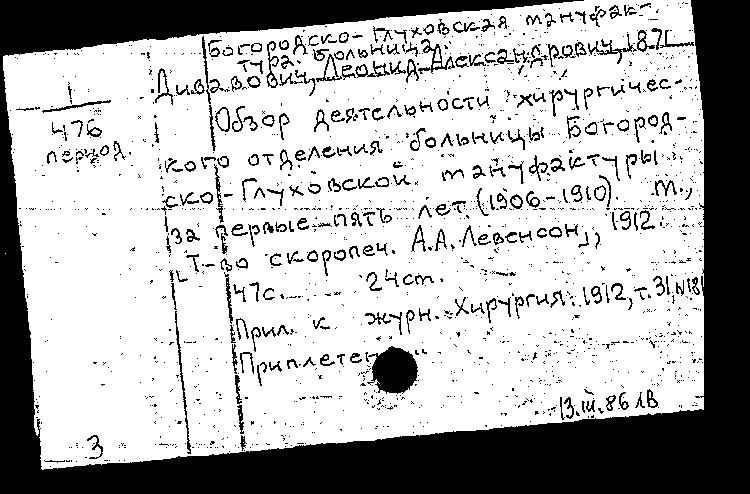 Богородско-Глуховская мануфак-
тура. Больница.
Дивавович, Леонид Александрович, 1871
1
476
период.
Обзор деятельности хирургичес-
кого отделения больницы Богород-
ско-Глуховской мануфактуры
за первые пять лет (1906-1910) М.,
„Т-во скоропеч. А.А. Левенсон", 1912.
47с. 24см.
Прил. к журн. Хирургия. 1912, т. 31, №181
Приплетен
3
13.III.86 ЛВ